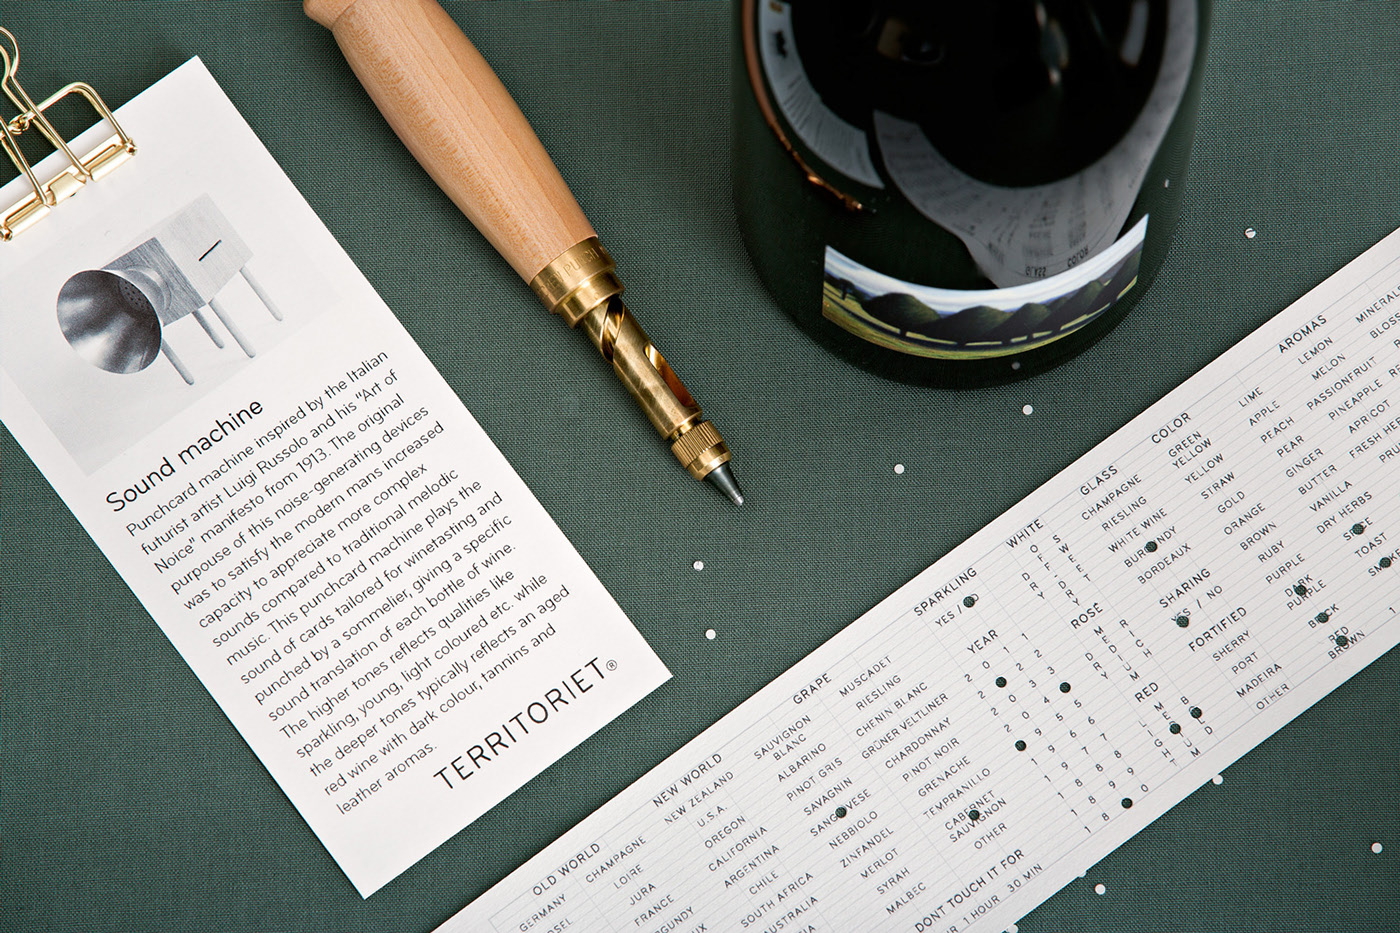 Sound machine
Punchcard machine inspired by the Italian
futurist artist Luigi Russolo and his "Art of
Noice" manifesto from 1913. The original
purpouse of this noise-generating devices
was to satisfy the modern mans increased
capacity to appreciate more complex
sounds compared to traditional melodic
music. This punchcard machine plays the
sound of cards tailored for winetasting and
punched by a sommelier, giving a specific
sound translation of each bottle of wine.
The higher tones reflects qualities like
sparkling, young, light coloured etc. while
the deeper tones typically reflects an aged
red wine with dark colour, tannins and
leather aromas.
TERRITORIET®
OLD WORLD
GERMANY
CHAMPAGNE
LOIRE
JURA
FRANCE
NEW WORLD
NEW ZEALAND
U.S.A.
OREGON
CALIFORNIA
ARGENTINA
CHILE
SOUTH AFRICA
GRAPE
SAUVIGNON
BLANC
ALBARINO
PINOT GRIS
SAVAGNIN
NEBBIOLO
ZINFANDEL
MERLOT
SYRAH
MALBEC
MUSCADET
RIESLING
CHENIN BLANC
GRÜNER VELTLINER
CHARDONNAY
PINOT NOIR
GRENACHE
TEMPRANILLO
CABERNET
SAUVIGNON
OTHER
DONT TOUCH IT FOR
1 HOUR
30 MIN
SPARKLING
YES /
YEAR
2 0 1 1
2 2 2
2 3 3
0 4
9 5 5
1 9 6 6
1 9 7 7
1 8 8 8
1 8 9 9
1 8 0
WHITE
DRY
OFF DRY
SWEET
ROSE
DRY
MEDIUM
RICH
RED
LIGHT
MEDIUM
BOLD
GLASS
CHAMPAGNE
RIESLING
WHITE WINE
BORDEAUX
SHARING
YES / NO
FORTIFIED
SHERRY
PORT
MADEIRA
OTHER
COLOR
GREEN
YELLOW
YELLOW
STRAW
GOLD
ORANGE
BROWN
RUBY
PURPLE
DARK
PURPLE
RED
BROWN
AROMAS
LIME
LEMON
APPLE
MELON
PEACH
PASSIONFRUIT
PEAR
PINEAPPLE
GINGER
BUTTER
FRESH HER
VANILLA
DRY HERBS
TOAST
GLASS
COLOR